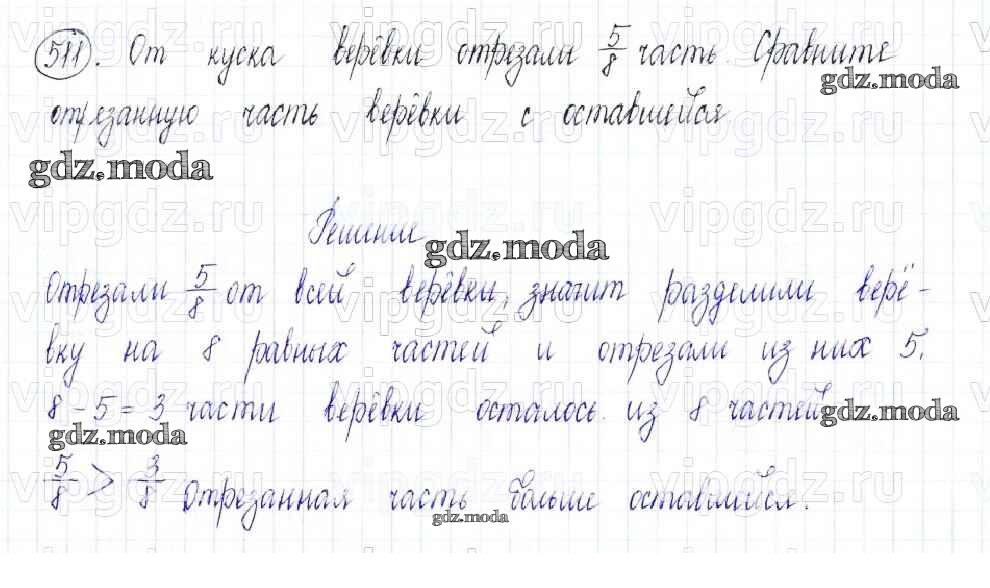 511. От куска верёвки отрезали 5/8 часть. Сравните
отрезанную часть верёвки с оставшейся
Решение
Отрезали 5/8 от всей верёвки, значит разделили верё-
вку на 8 равных частей и отрезали из них 5.
8 - 5 = 3 части верёвки осталось из 8 частей
5/8 > 3/8 Отрезанная часть больше оставшейся.
gdz.moda
gdz.moda
gdz.moda
gdz.moda
gdz.moda
gdz.moda
vipgdz.ru